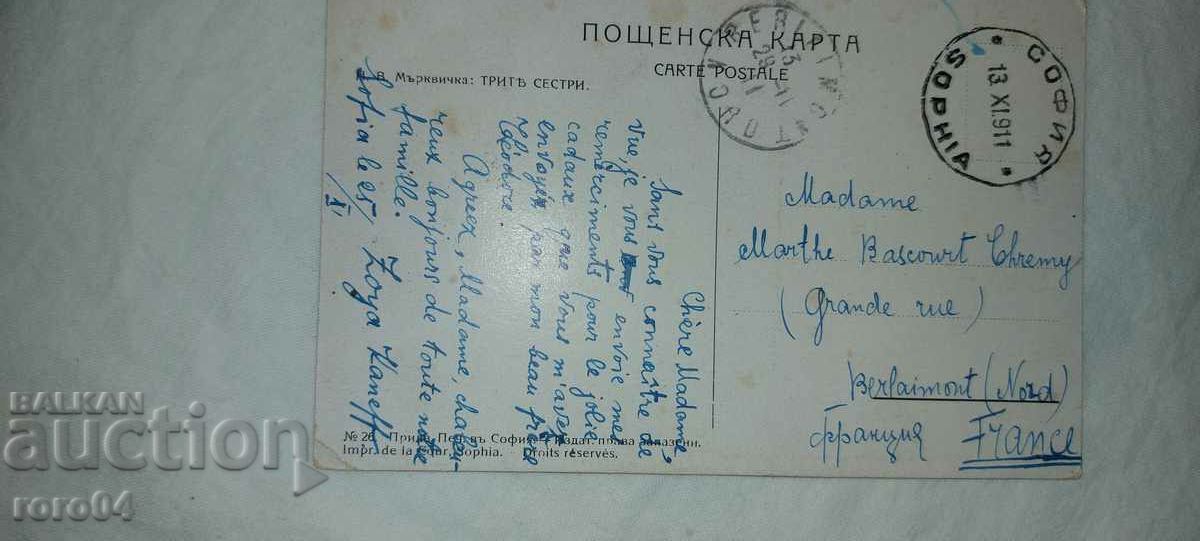 ПОЩЕНСКА КАРТА
CARTE POSTALE
Мърквичка: ТРИТѢ СЕСТРИ.
Chère Madame,
Sans vous connaître de
vue, je vous envoie mes
remerciments pour le jolie
cadaux que vous m'avez
envoyée par mon beau frère
Théodore.
Agreez, Madame, chaleu-
reux bonjours de toute notre
famille.
Sofia le 15/XI Zoya Kaneff
№ 26
Придв. Печ. въ София. Издат. права запазени.
Impr. de la Cour, Sophia. Droits réservés.
СОФИЯ
13 XI.911
SOPHIA
BERLAIMONT
NORD
Madame
Marthe Bascourt Chremy
(Grande rue)
Berlaimont (Nord)
франция France
BALKAN
auction
roro04